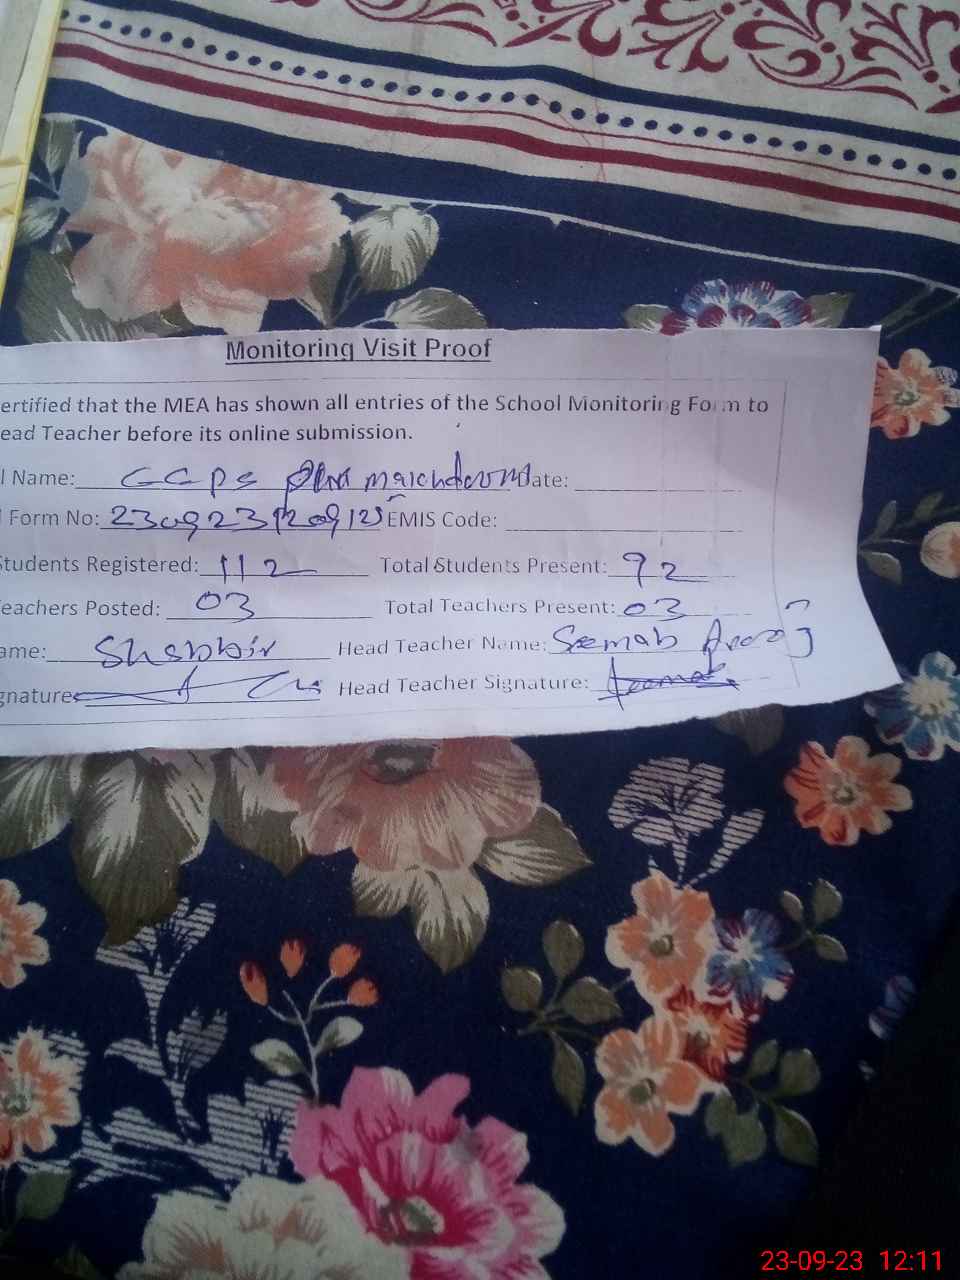 Monitoring Visit Proof
ertified that the MEA has shown all entries of the School Monitoring Form to
ead Teacher before its online submission.
l Name: GGPS Date:
Form No: EMIS Code:
Students Registered: 112 Total Students Present: 92
eachers Posted: 03 Total Teachers Present: 03
ame: Shabbir Head Teacher Name: Seemab
gnature Head Teacher Signature:
23-09-23 12:11